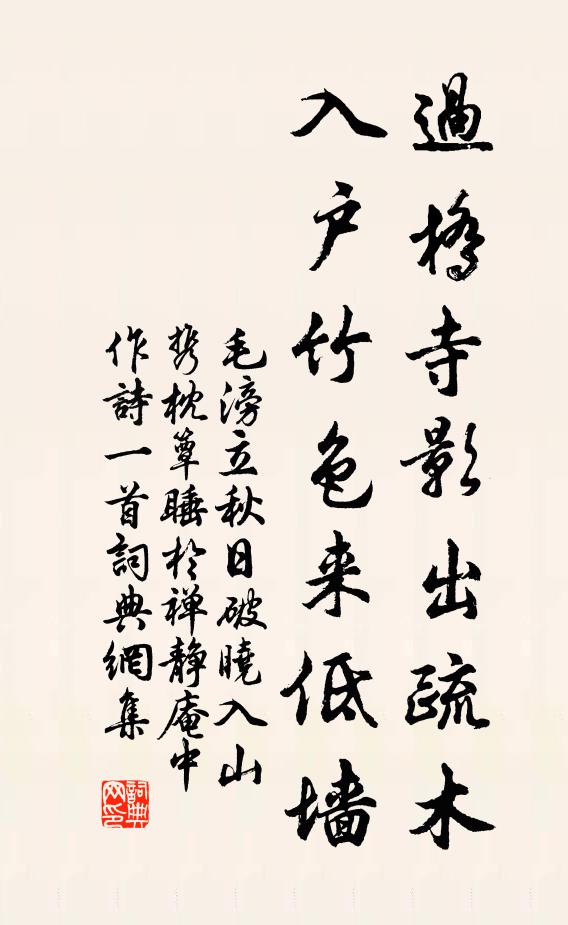 過橋寺影出疏木
入户竹色来低墙
毛滂立秋日破曉入山
携枕簟睡於禅静庵中
作詩一首詞典網集
詞典网印